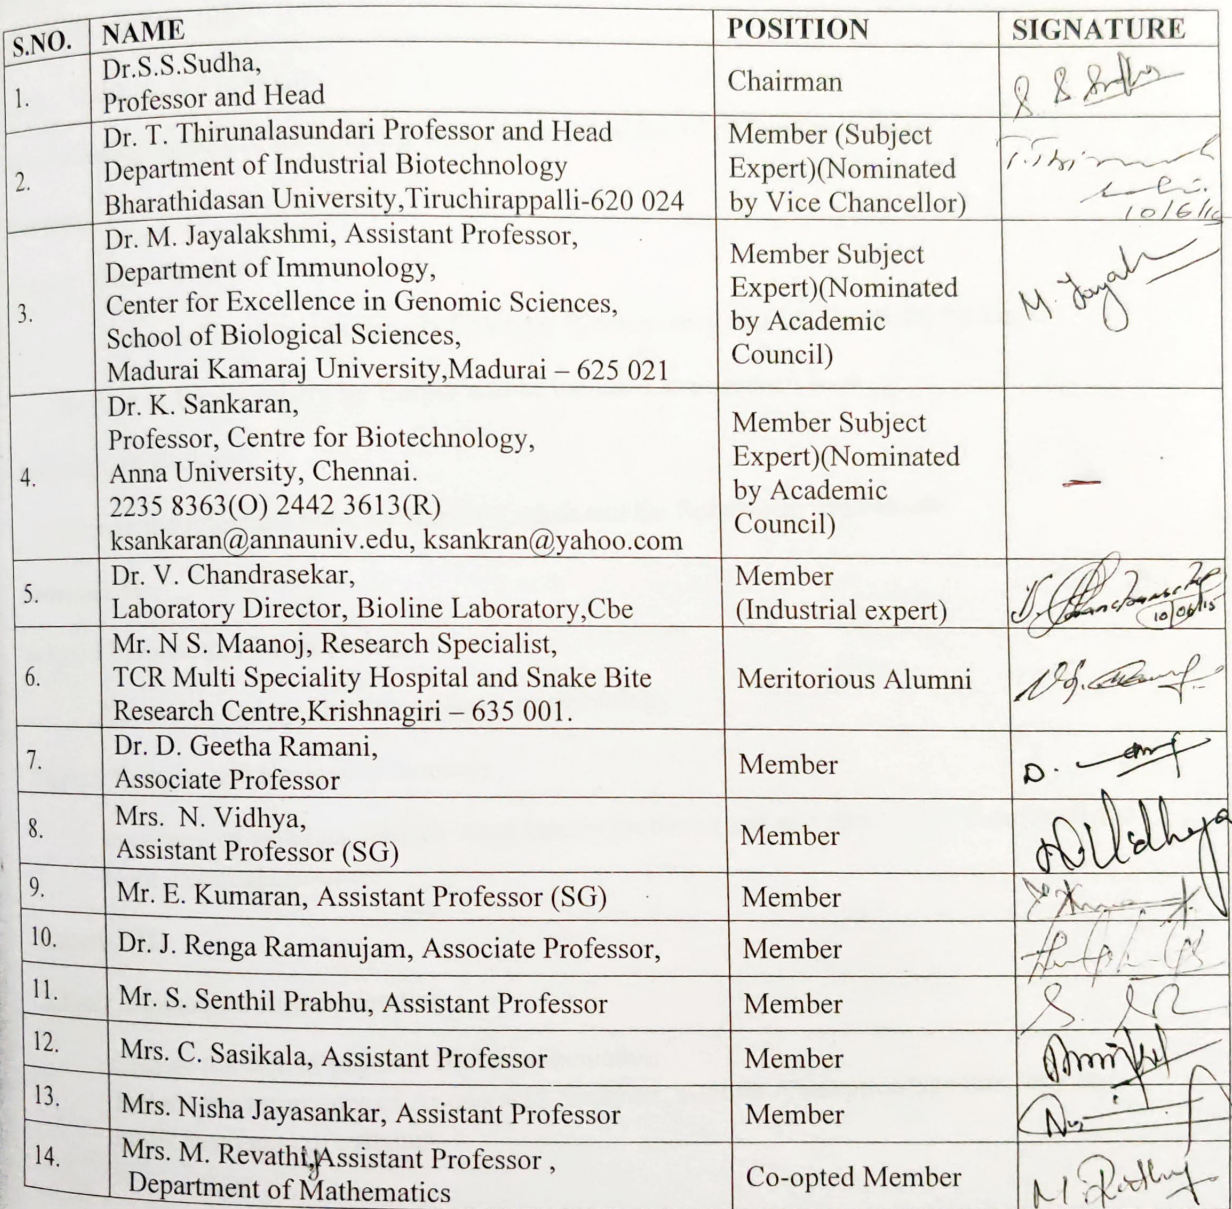 S.NO. NAME POSITION SIGNATURE
1.
Dr.S.S.Sudha,
Professor and Head
Chairman
S. S Sudha
2.
Dr. T. Thirunalasundari Professor and Head
Department of Industrial Biotechnology
Bharathidasan University,Tiruchirappalli-620 024
Member (Subject
Expert)(Nominated
by Vice Chancellor)
10/6/15
3.
Dr. M. Jayalakshmi, Assistant Professor,
Department of Immunology,
Center for Excellence in Genomic Sciences,
School of Biological Sciences,
Madurai Kamaraj University,Madurai – 625 021
Member Subject
Expert)(Nominated
by Academic
Council)
M. Jayal
4.
Dr. K. Sankaran,
Professor, Centre for Biotechnology,
Anna University, Chennai.
2235 8363(O) 2442 3613(R)
ksankaran@annauniv.edu, ksankran@yahoo.com
Member Subject
Expert)(Nominated
by Academic
Council)
–
5.
Dr. V. Chandrasekar,
Laboratory Director, Bioline Laboratory,Cbe
Member
(Industrial expert)
10/06/15
6.
Mr. N S. Maanoj, Research Specialist,
TCR Multi Speciality Hospital and Snake Bite
Research Centre,Krishnagiri – 635 001.
Meritorious Alumni
7.
Dr. D. Geetha Ramani,
Associate Professor
Member
D.
8.
Mrs. N. Vidhya,
Assistant Professor (SG)
Member
N. Vidhya
9.
Mr. E. Kumaran, Assistant Professor (SG)
Member
10.
Dr. J. Renga Ramanujam, Associate Professor,
Member
11.
Mr. S. Senthil Prabhu, Assistant Professor
Member
S.
12.
Mrs. C. Sasikala, Assistant Professor
Member
13.
Mrs. Nisha Jayasankar, Assistant Professor
Member
14.
Mrs. M. Revathi, Assistant Professor ,
Department of Mathematics
Co-opted Member
M.